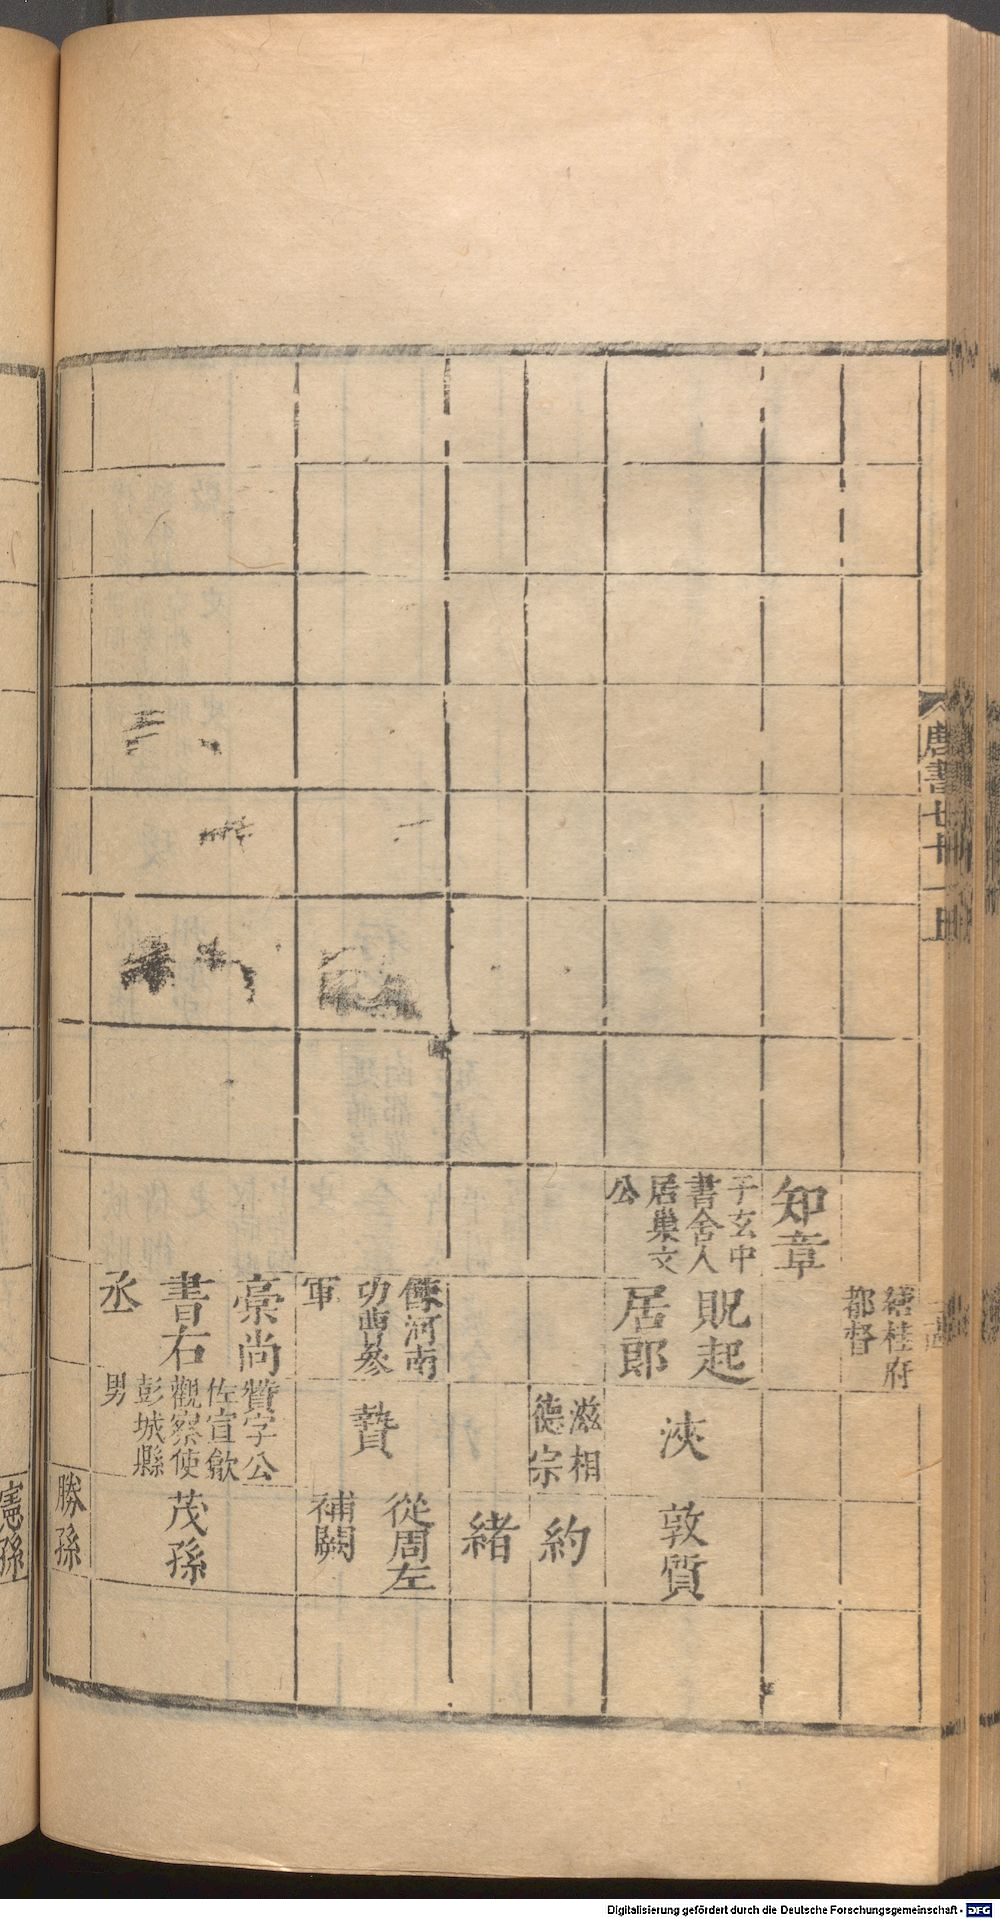 唐書七十一
繕桂府
都督
知章
子玄中
書舍人
居巢文
公
貺起
居郎
浹
敦質
滋相
德宗
約
緒
倲河南
功曹參
軍
贊
從周左
補闕
稾尚
書右
丞
贊字公
佐宣歙
觀察使
彭城縣
男
茂孫
勝孫
憲孫
Digitalisierung gefördert durch die Deutsche Forschungsgemeinschaft - DFG